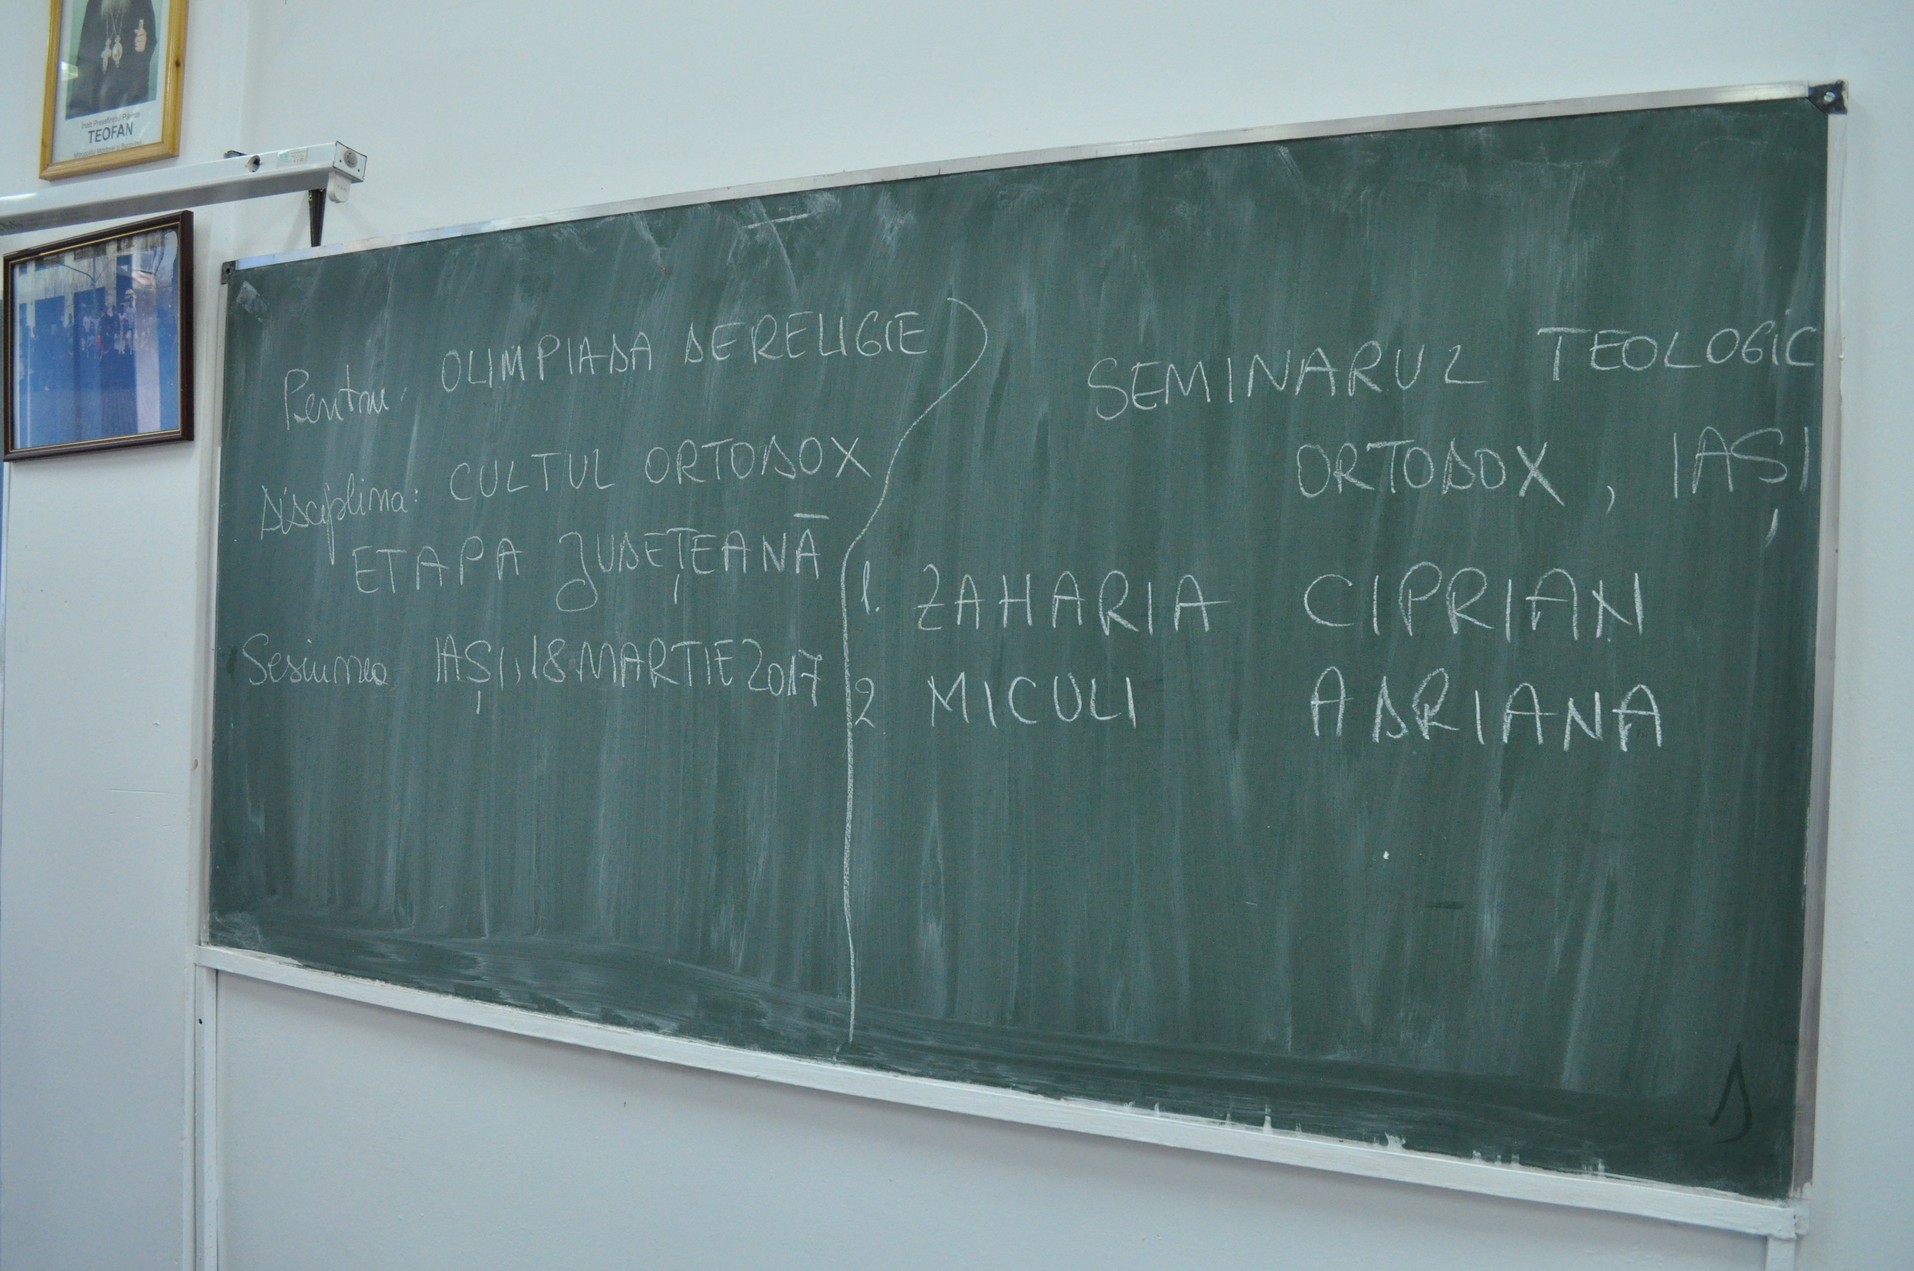 TEOFAN
Pentru: OLIMPIADA DE RELIGIE
Disciplina: CULTUL ORTODOX
ETAPA JUDEȚEANĂ
Sesiunea IAȘI, 18 MARTIE 2017
SEMINARUL TEOLOGIC
ORTODOX, IAȘI
1. ZAHARIA CIPRIAN
2 MICULI ADRIANA